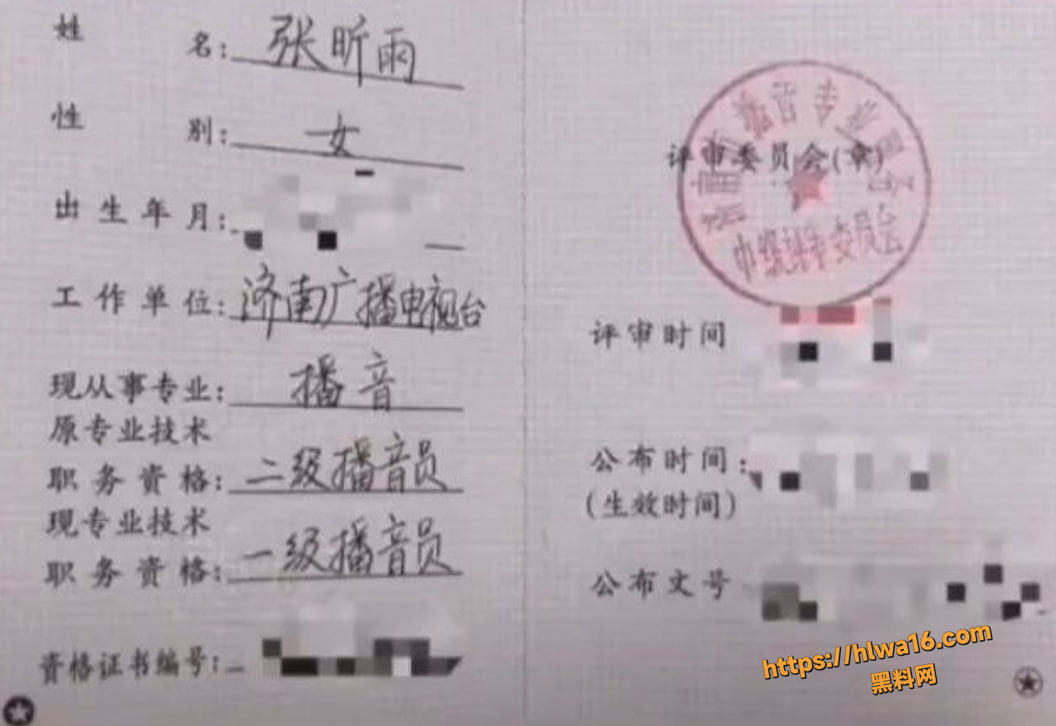 姓 名: 张昕雨
性 别: 女
出生年月:
工作单位: 济南广播电视台
现从事专业: 播音
原专业技术
职务资格: 二级播音员
现专业技术
职务资格: 一级播音员
资格证书编号:
播音专业
评审委员会(章)
中级评审委员会
评审时间
公布时间:
(生效时间)
公布文号
https://hlwa16.com
黑料网